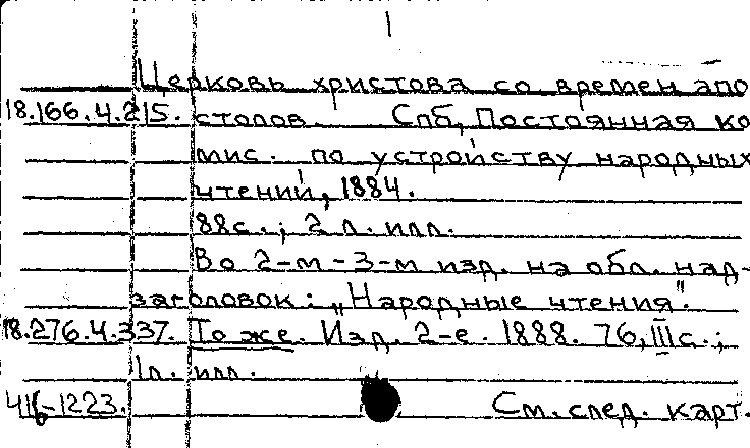 1
Церковь христова со времен апо
18.166.4.215. столов. Спб, Постоянная ко
мис. по устройству народных
чтений, 1884.
88с.; 2 л. илл.
Во 2-м-3-м изд. на обл. над-
заголовок: „Народные чтения".
18.276.4.337. То же. Изд. 2-е. 1888. 76, III с.;
1л. илл.
416-1223. См. след. карт.